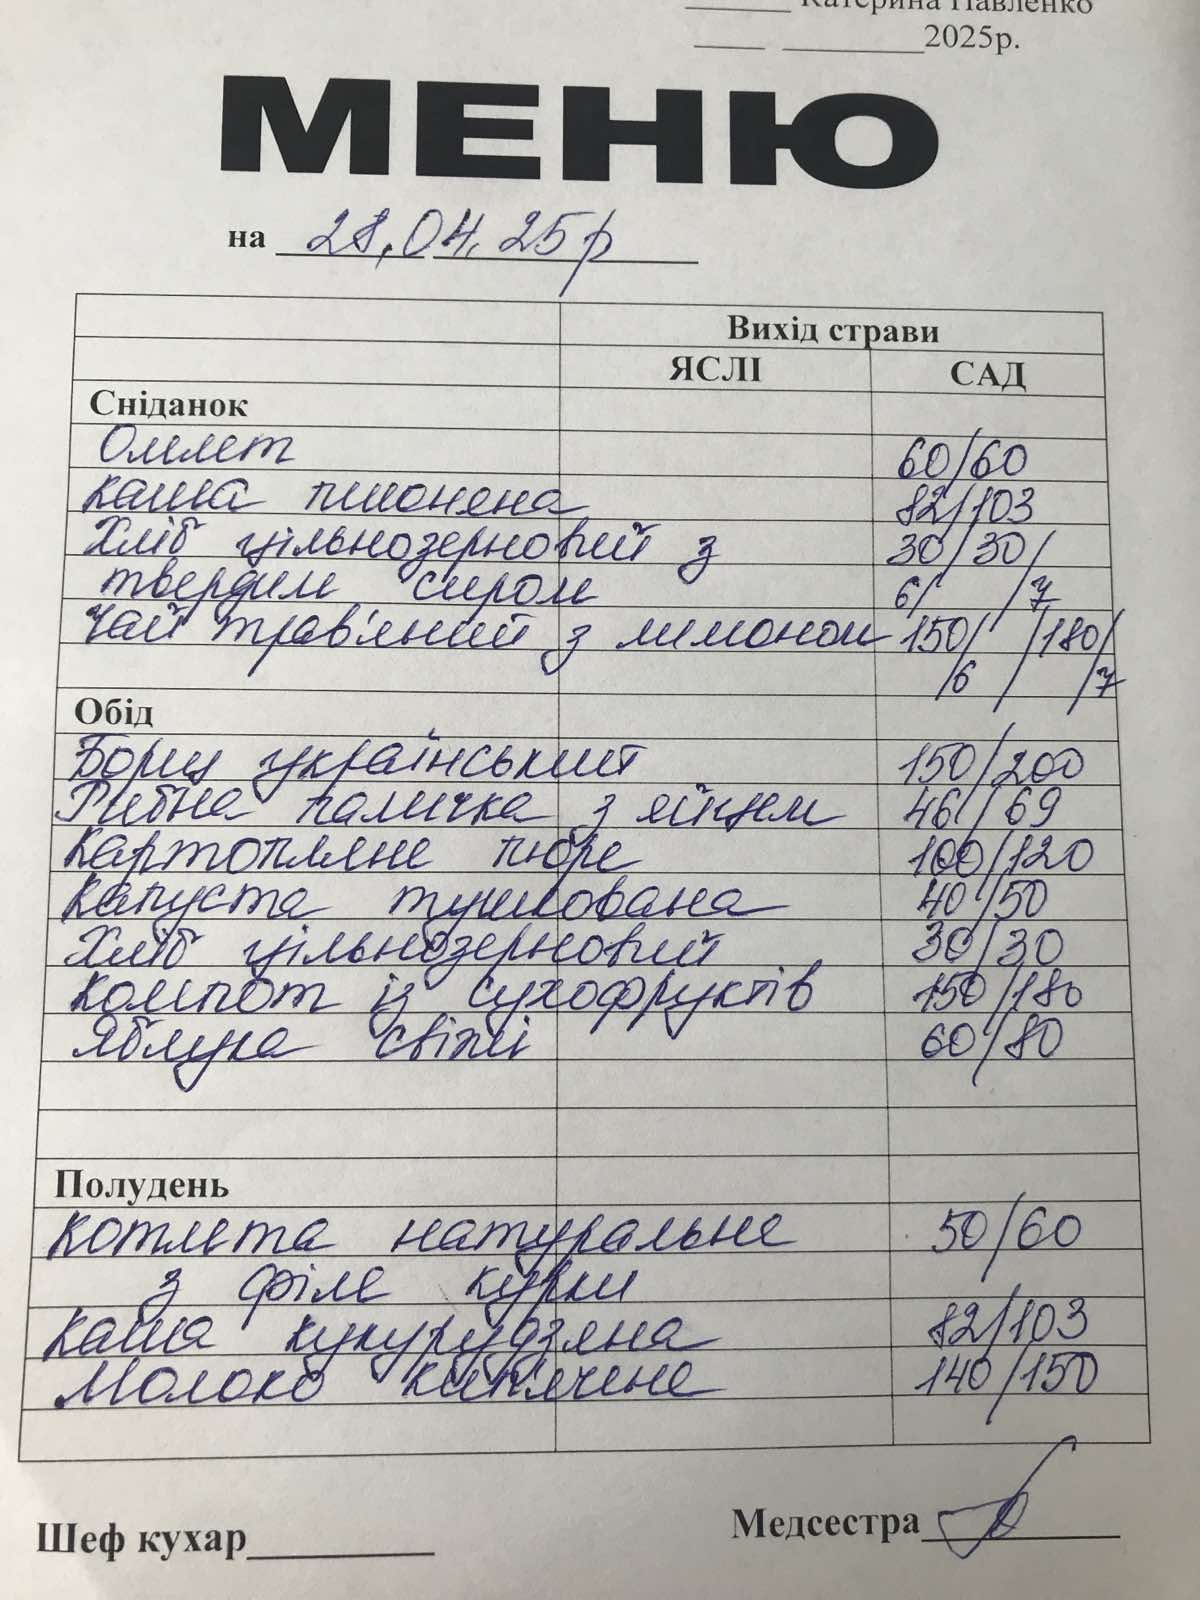 Катерина Павленко
2025р.
МЕНЮ
на 28.04.25р
Вихід страви
ЯСЛІ САД
Сніданок
Омлет 60/60
Каша пшоняна 82/103
Хліб цільнозерновий з 30/30/
твердим сиром 6/ /7
Чай трав'яний з лимоном 150/ /180/
/6 /7
Обід
Борщ український 150/200
Рибна паличка з яйцем 46/69
Картопляне пюре 100/120
Капуста тушкована 40/50
Хліб цільнозерновий 30/30
Компот із сухофруктів 150/180
Яблука свіжі 60/80
Полудень
Котлета натуральне 50/60
з філе курки
Каша кукурудзяна 82/103
Молоко кип'ячене 140/150
Шеф кухар Медсестра